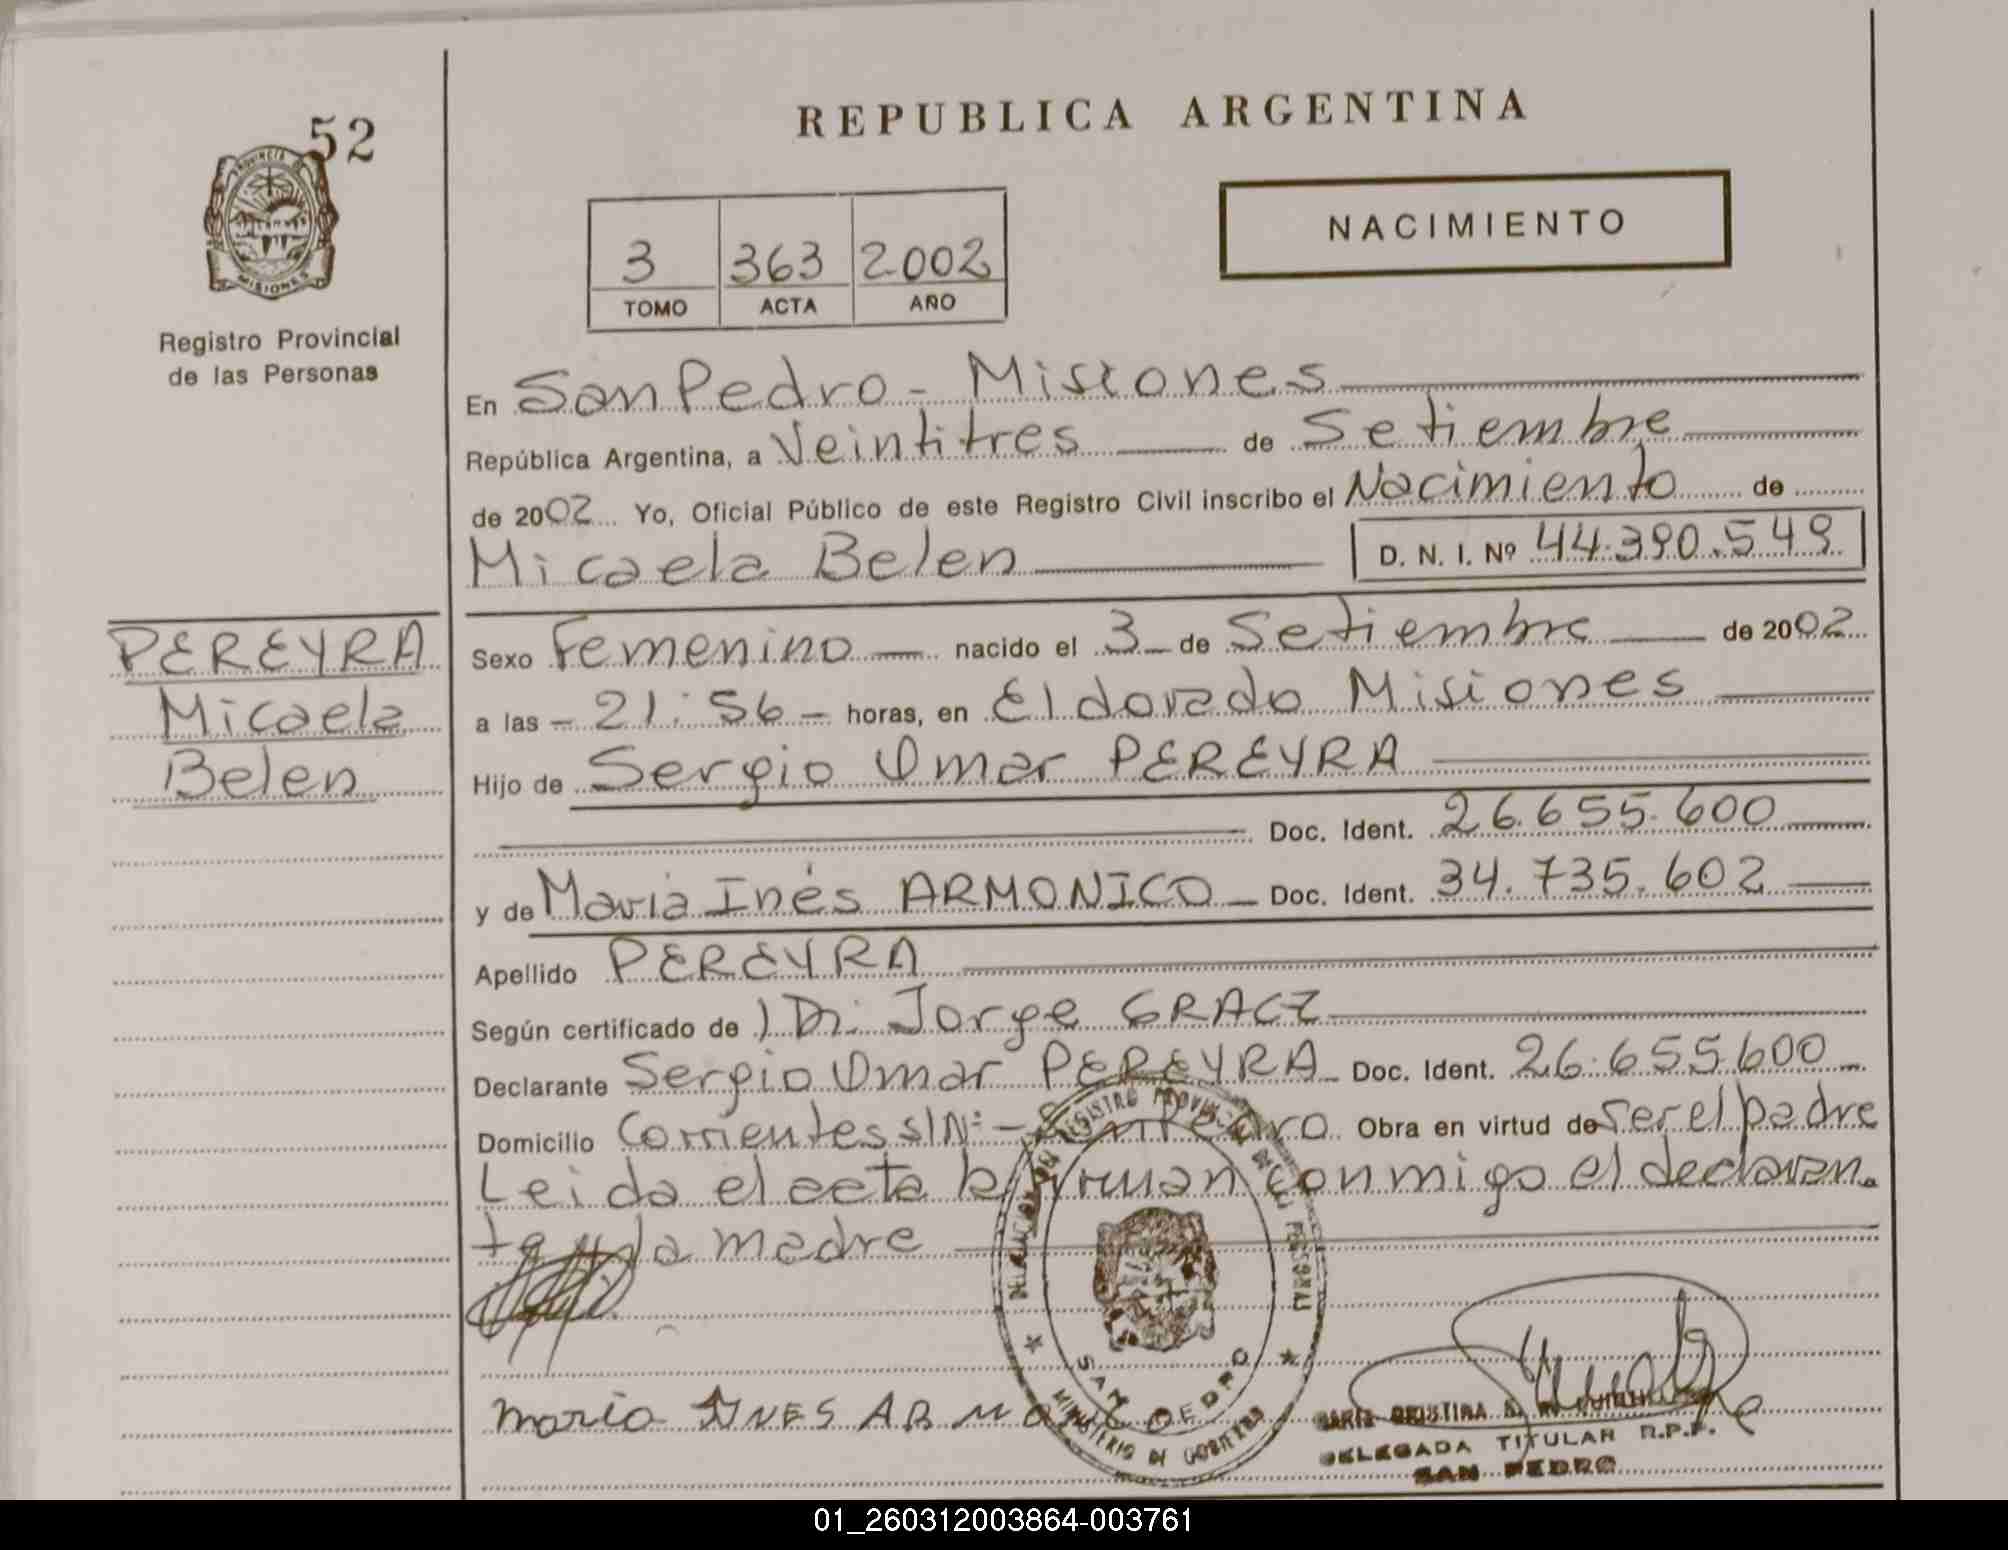 52
PROVINCIA DE
MISIONES
Registro Provincial
de las Personas
PEREYRA
Micaela
Belen
REPUBLICA ARGENTINA
NACIMIENTO
3 363 2002
TOMO ACTA AÑO
En San Pedro - Misiones
República Argentina, a Veintitres de Setiembre
de 2002 Yo, Oficial Público de este Registro Civil inscribo el Nacimiento de
Micaela Belen D. N. I. Nº 44.390.549
Sexo Femenino nacido el 3 de Setiembre de 2002
a las - 21:56 - horas, en Eldorado Misiones
Hijo de Sergio Omar PEREYRA
Doc. Ident. 26.655.600
y de María Inés ARMONICO Doc. Ident. 34.735.602
Apellido PEREYRA
Según certificado de Dr. Jorge
Declarante Sergio Omar PEREYRA Doc. Ident. 26.655.600
Domicilio Corrientes S/Nº - San Pedro Obra en virtud de ser el padre
Leida el acta la firman conmigo el declaran
te y la madre
REGISTRO PROVINCIAL DE LAS PERSONAS
SAN PEDRO
MINISTERIO DE GOBIERNO
maria INES
CRISTINA
DELEGADA TITULAR R.P.P.
SAN PEDRO
01_260312003864-003761